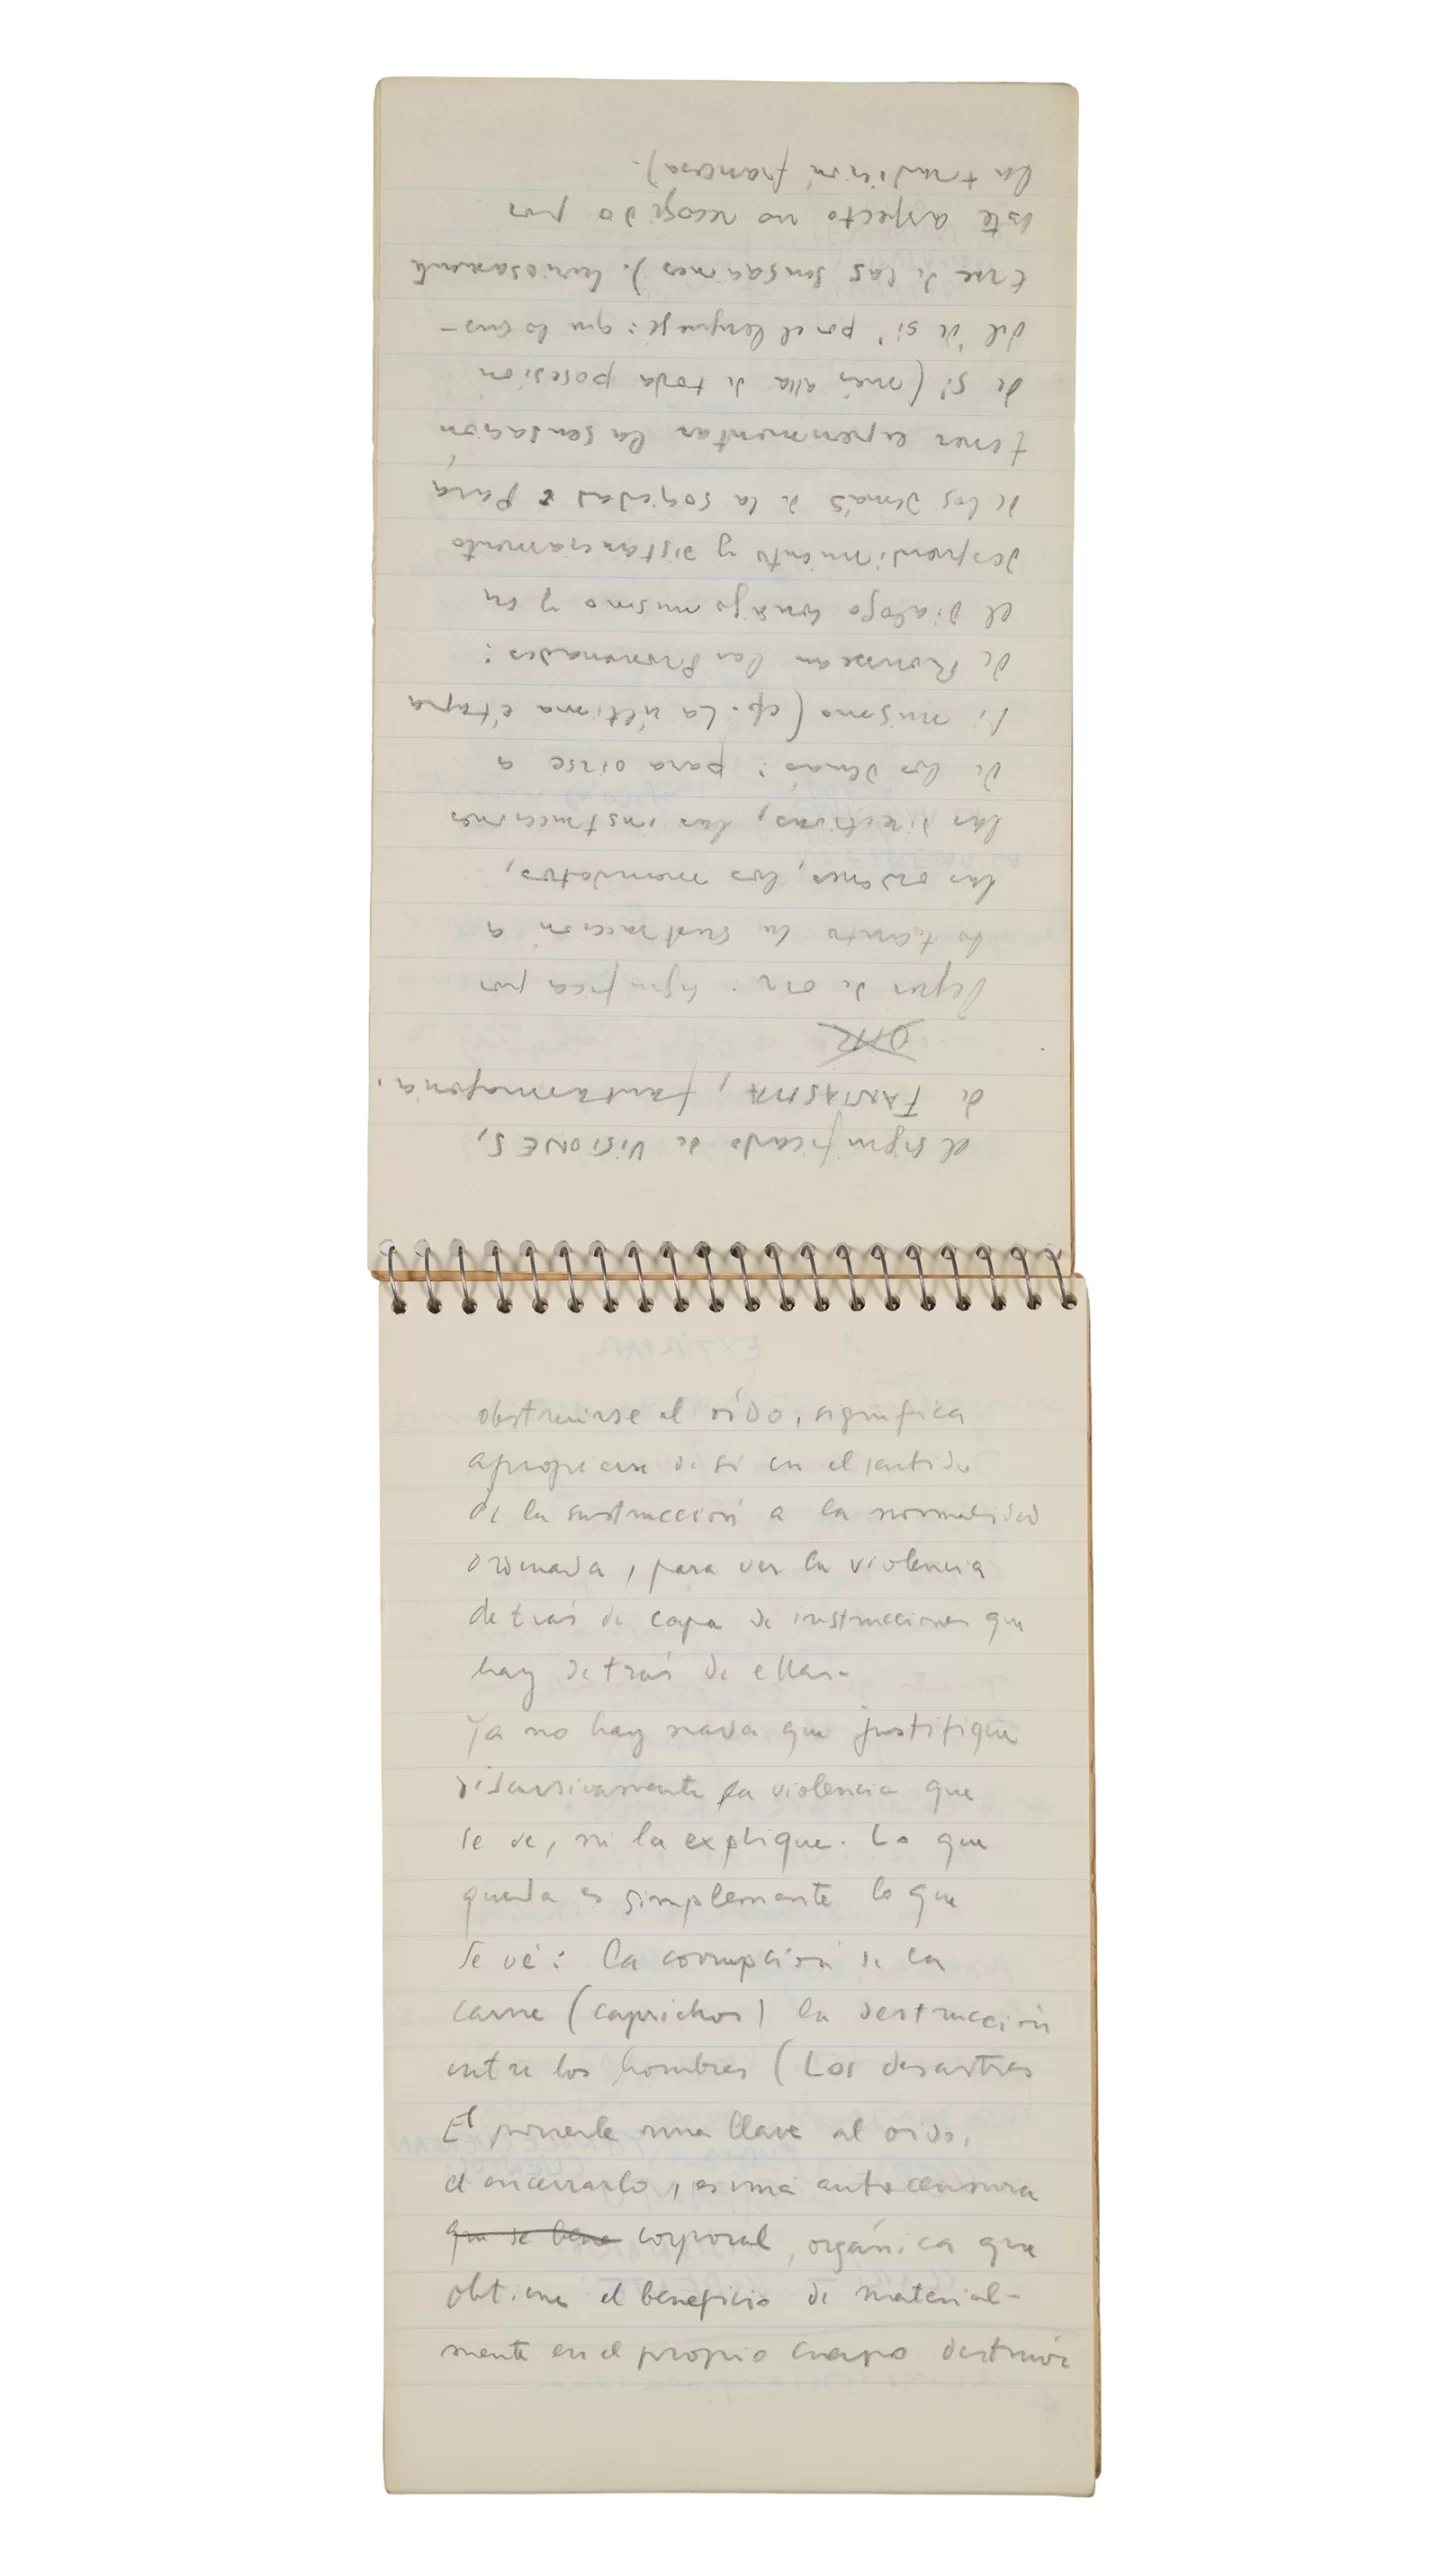 el significado de VISIONES,
de FANTASMA, fantasmagoría.
OIR
Dejar de oir: significa por
lo tanto la sustracción a
las ordenes, los mandatos,
las directivas, las instrucciones
de los demás: para oirse a
si mismo (cf. La última etapa
de Rousseau las Promenades:
el dialogo consigo mismo y en
desprendimiento y distanciamento
de los demás de la sociedad. Para
tener experimentar la sensación
de sí (más alla de toda posesion
del "de sí" por el lenguaje: que lo sus-
trae de las sensaciones). Curiosamente
este aspecto no recogido por
la tradición francesa).
obstruirse el oído, significa
apropiarse de si en el sentido
de la sustracción a la normalidad
ordenada, para ver la violencia
detrás de capa de instrucciones que
hay detrás de ellas-
Ya no hay nada que justifique
discursivamente la violencia que
se ve, ni la explique. Lo que
queda es simplemente lo que
se vé: la corrupción de la
carne (caprichos) la destrucción
entre los hombres (Los desastres
El ponerle una llave al oido,
el encerrarlo, es una autocensura
que se hace corporal, orgánica que
obtiene el beneficio de material-
mente en el propio cuerpo destruir